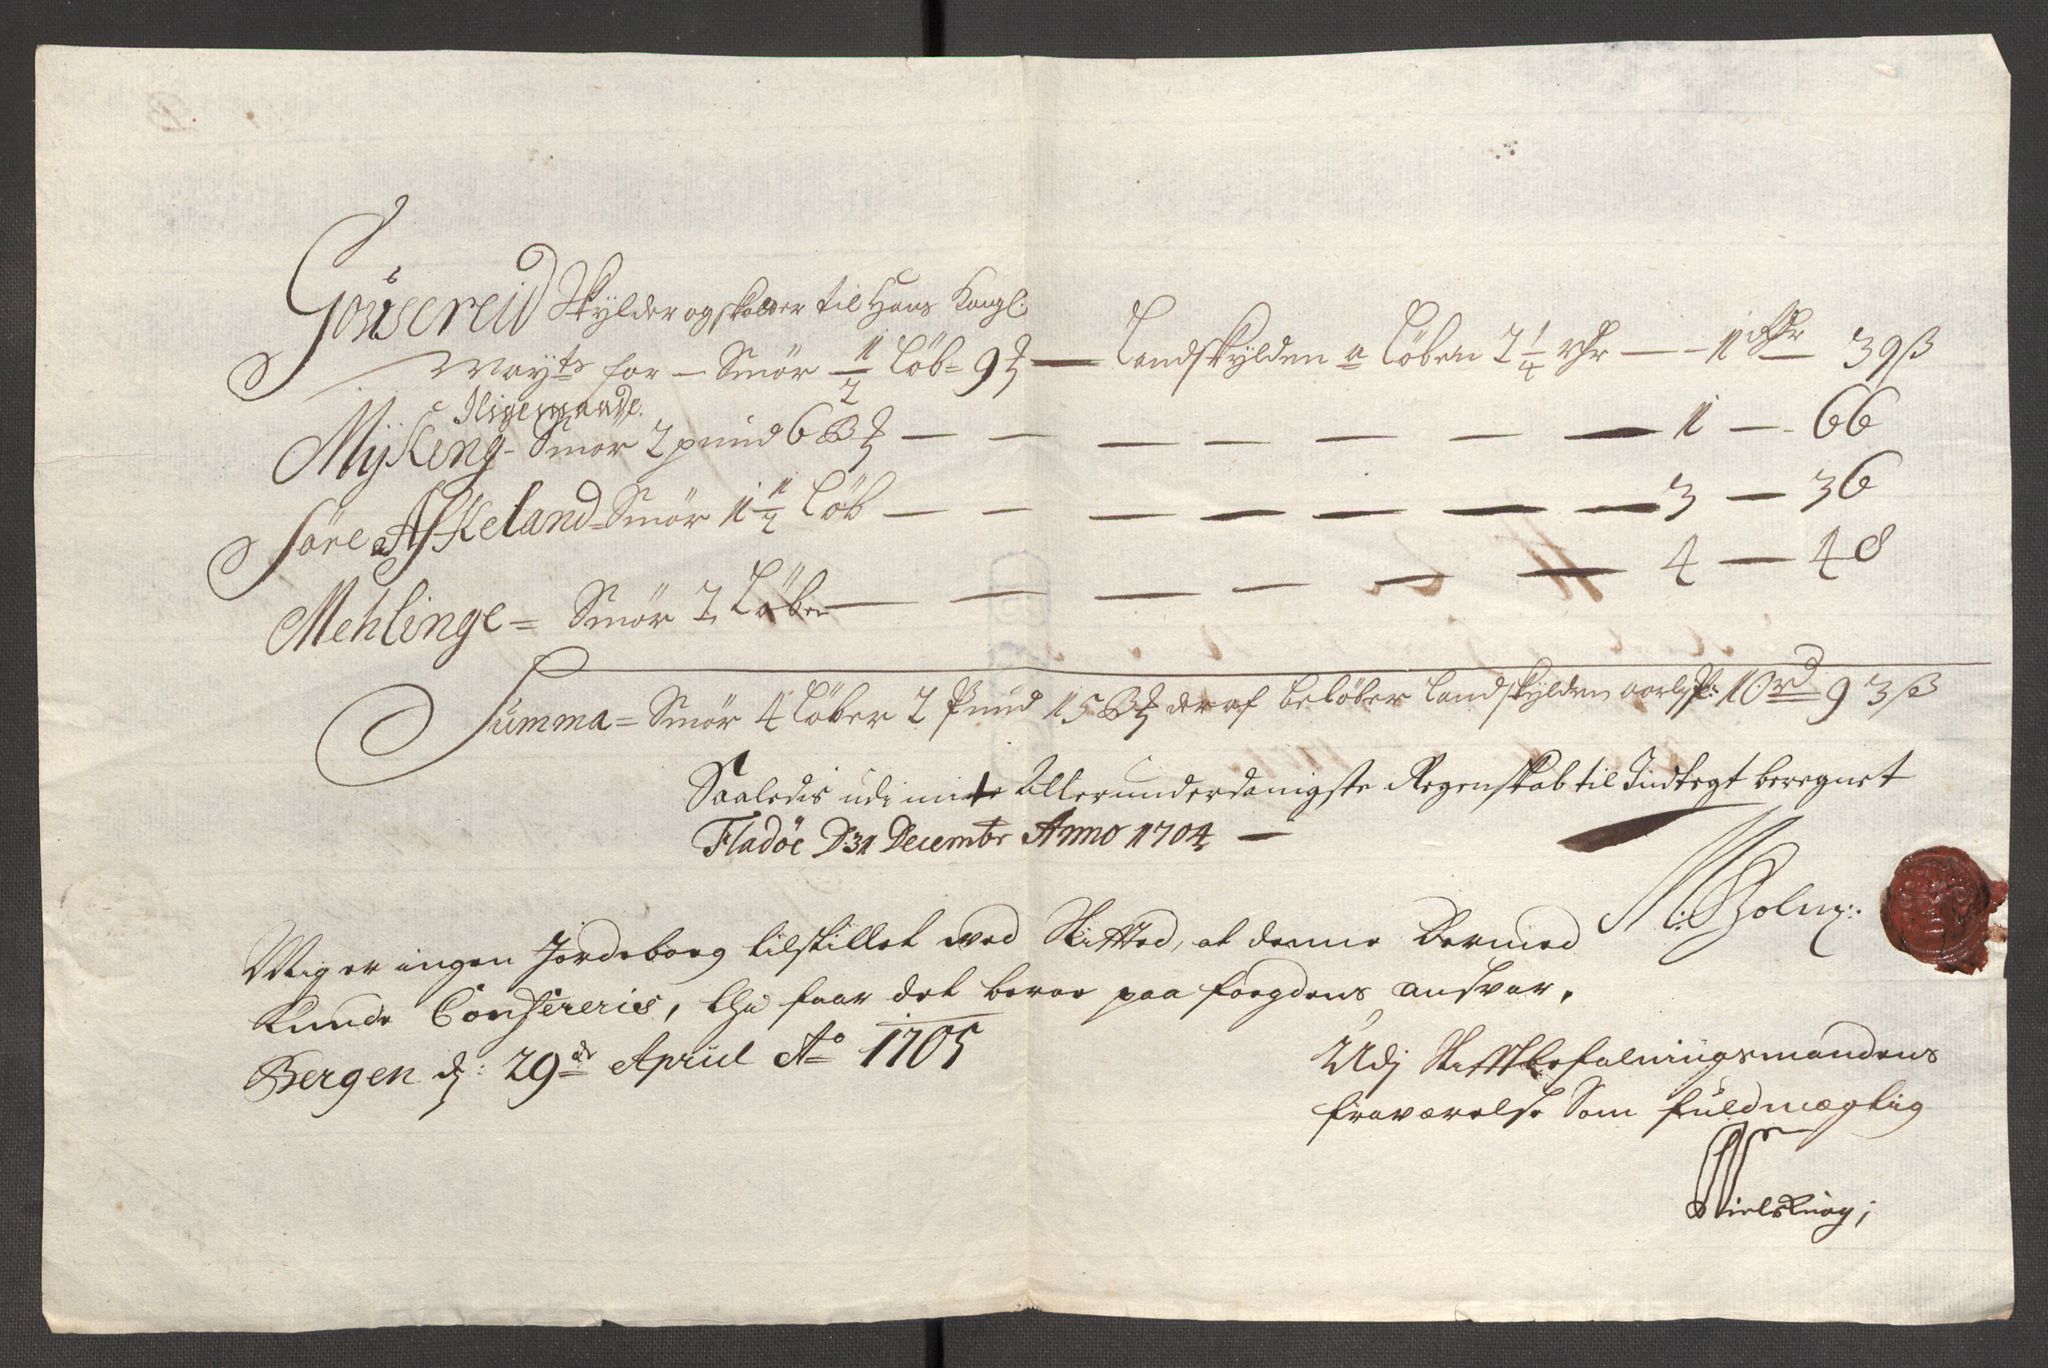 Gousereid Skylder og skatter til Hans Kongl:
Mayts for — Smör 1/2 Löb = 9 — Landskylden a Löben 2 1/4 — 1 — 39 ß
Iligemaade
Mÿking - Smör 2 pund 6 — 1 — 66
Söre Askeland - Smör 1 1/2 Löb — 3 — 36
Mehlinge = Smör 2 Löber — 4 — 48
Summa = Smör 4 Löber 2 Pund 15 deraf beløber Landskylden aarl: 10 rd 93 ß
Saaledis udi mit Allerunderdanigste Regenskab til Indtegt beregnet
Fladöe D 31 Decembr Anno 1704 —
Holm:
Mig er ingen Jordeboeg tilstillet ved Stifted, at denne Dermed
Kunde Confereris, thi faar det beroe paa foegdens ansvar.
Bergen d: 29de April Ao 1705
Udj Stiftbefalningsmandens
fraværelse Som fuldmægtig
Niels Knag;